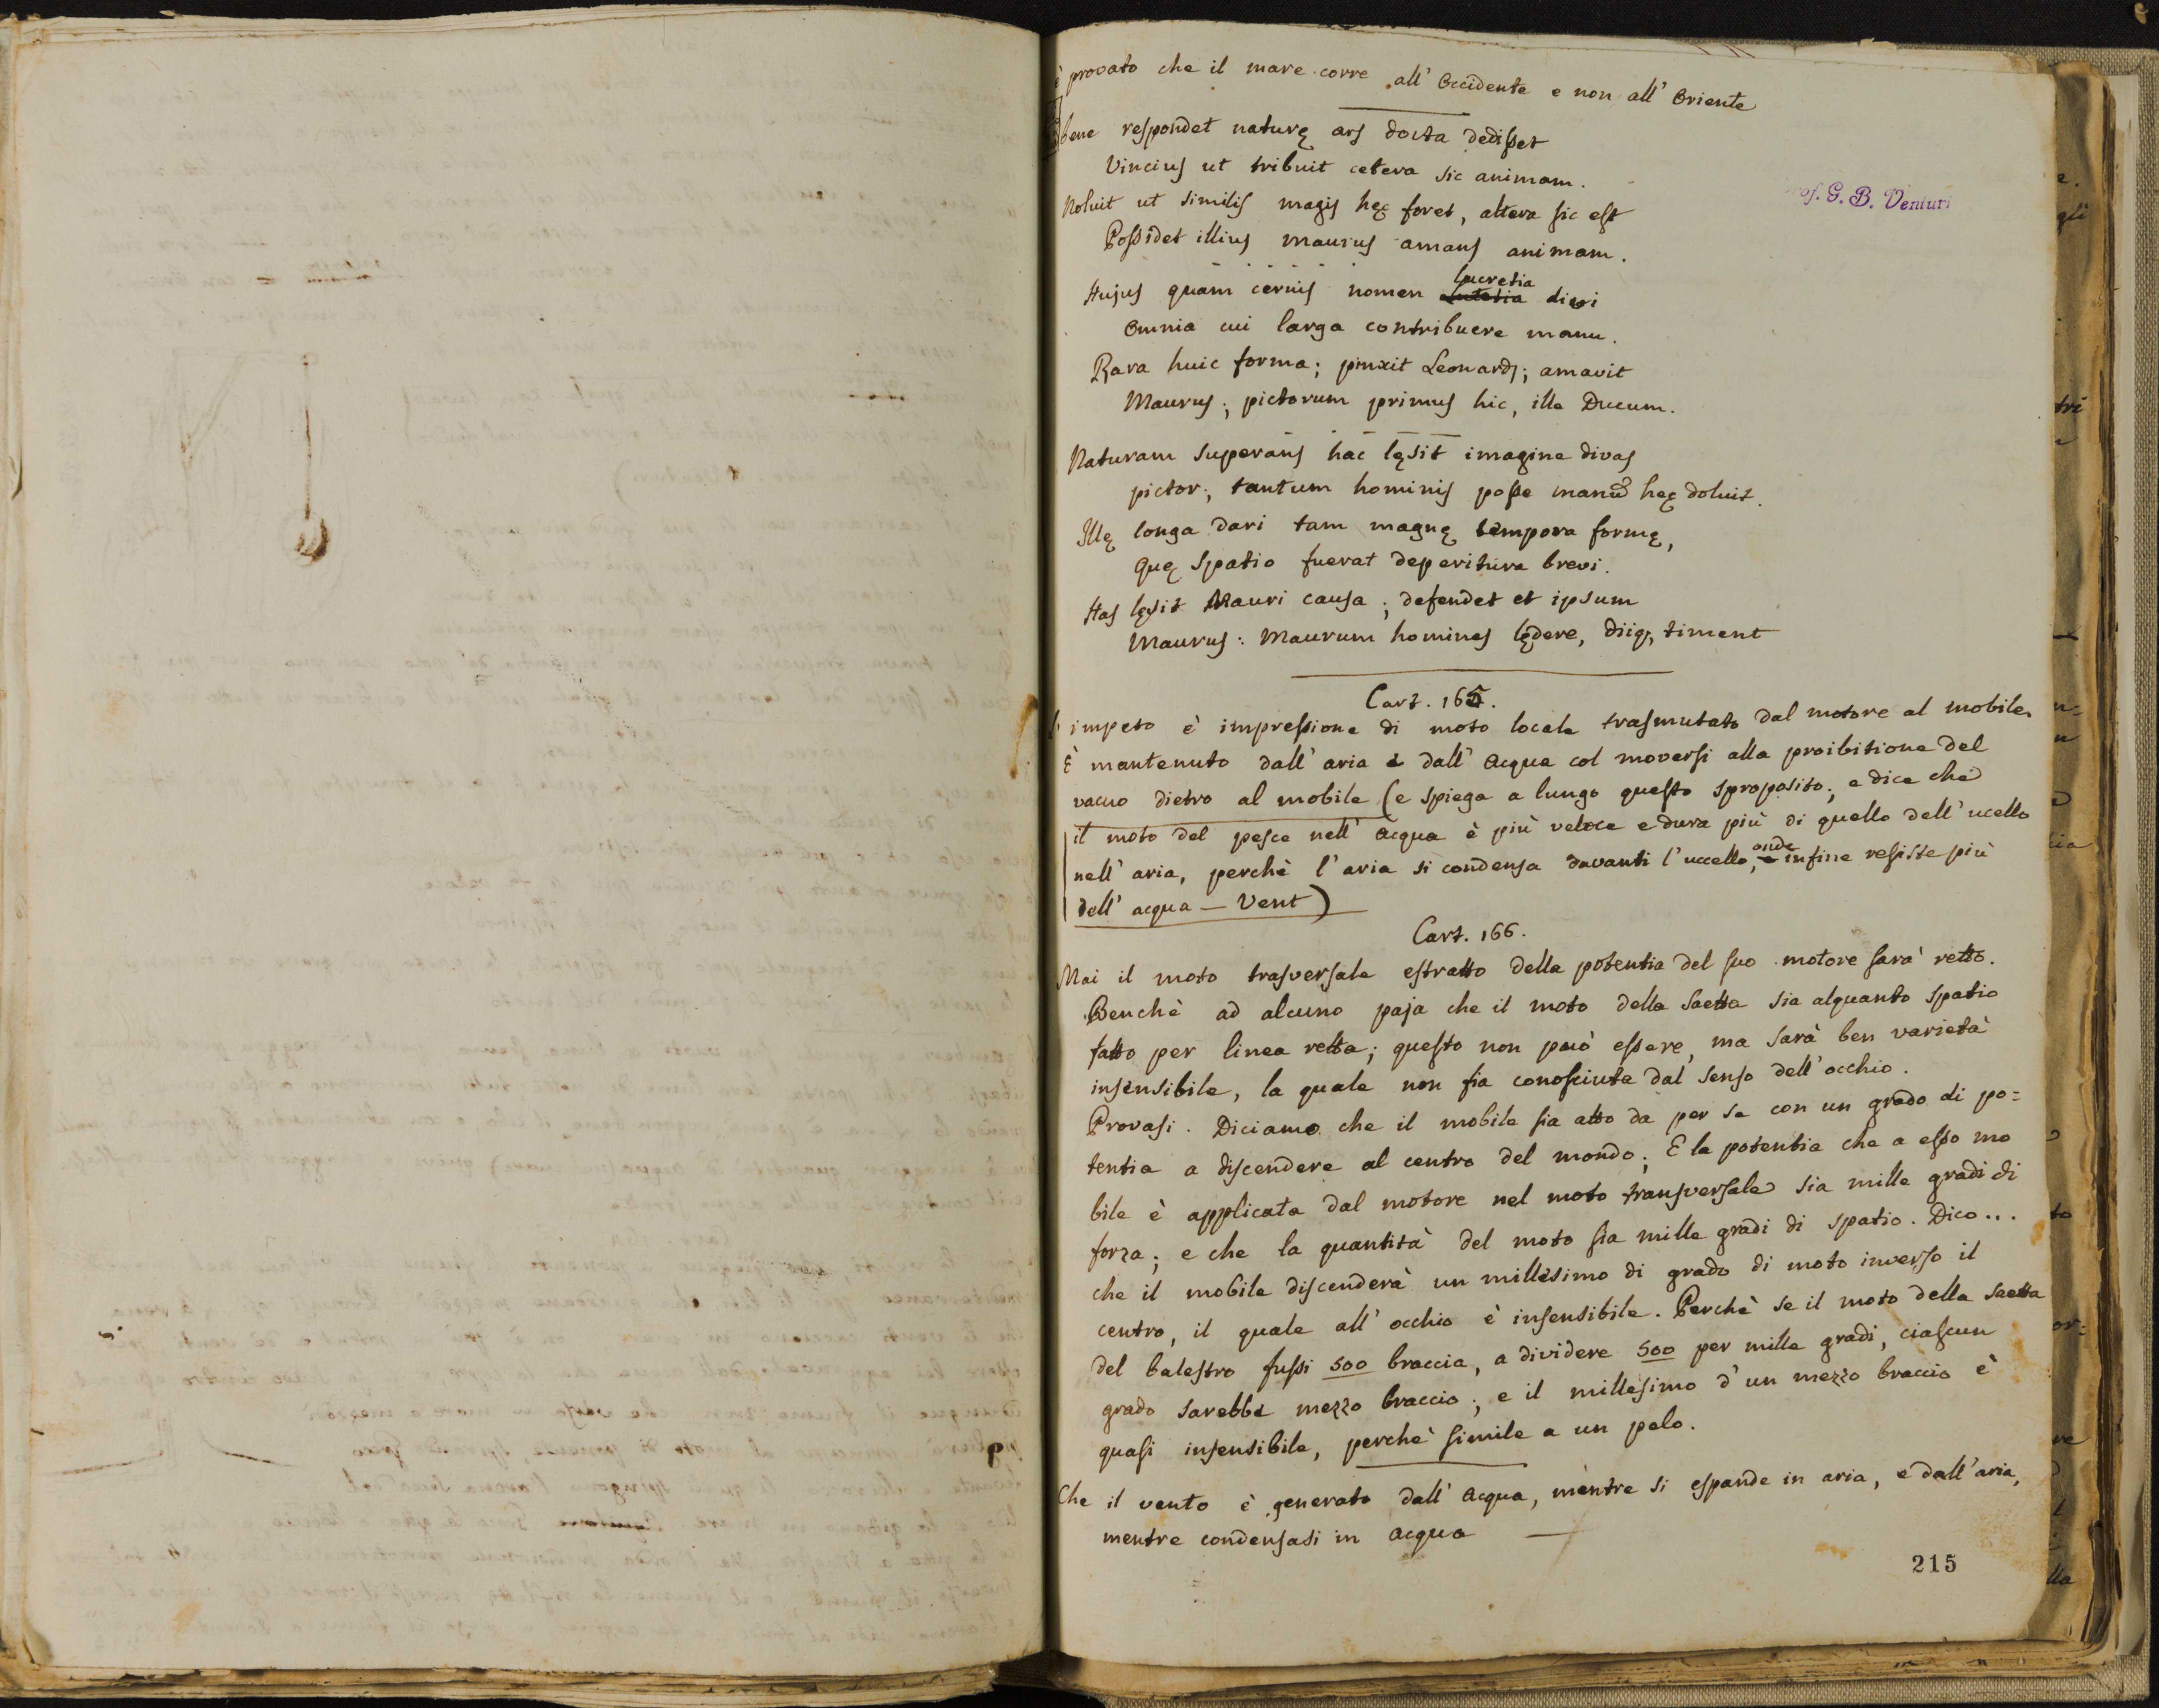 è provato che il mare corre all' Occidente e non all' Oriente
bene respondet naturę ars docta dedisset
Vincius ut tribuit cetera sic animam.
Noluit ut similis magis hęc foret, altera sic est
Possidet illius Maurus amans animam.
Hujus quam cernis nomen Lucretia divi
Omnia cui larga contribuere manu.
Rara huic forma; pinxit Leonards; amavit
Maurus; pictorum primus hic, ille Ducum.
Naturam superans hac lęsit imagine divas
pictor; tantum hominis posse manum hęc doluit.
Illę longa dari tam magnę tempora formę,
Quę spatio fuerat deperitura brevi.
Has lęsit Mauri causa; defendet et ipsum
Maurus: Maurum homines lędere, diiq, timent
Cart. 165.
impeto è impressione di moto locale trasmutato dal motore al mobile.
È mantenuto dall' aria e dall' Acqua col moversi alla proibitione del
vacuo dietro al mobile (e spiega a lungo questo sproposito; e dice che
il moto del pesce nell' Acqua è più veloce e dura più di quello dell' ucello
nell' aria, perchè l' aria si condensa davanti l' uccello, onde infine resiste più
dell' acqua — Vent)
Cart. 166.
Mai il moto trasversale estratto della potentia del suo motore sarà retto.
Benchè ad alcuno paja che il moto della saetta sia alquanto spatio
fatto per linea retta; questo non può essere, ma sarà ben varietà
insensibile, la quale non fia conosciuta dal senso dell' occhio.
Provasi. Diciamo che il mobile sia atto da per se con un grado di po=
tentia a discendere al centro del mondo; E la potentia che a esso mo
bile è applicata dal motore nel moto transversale sia mille gradi di
forza; e che la quantità del moto sia mille gradi di spatio. Dico...
che il mobile discenderà un millesimo di grado di moto inverso il
centro, il quale all' occhio è insensibile. Perchè se il moto della saetta
del balestro fussi 500 braccia, a dividere 500 per mille gradi, ciascun
grado sarebbe mezzo braccio; e il millesimo d' un mezzo braccio è
quasi insensibile, perchè simile a un pelo.
Che il vento è generato dall' Acqua, mentre si espande in aria, e dall' aria,
mentre condensasi in acqua —
Prof. G. B. Venturi
215